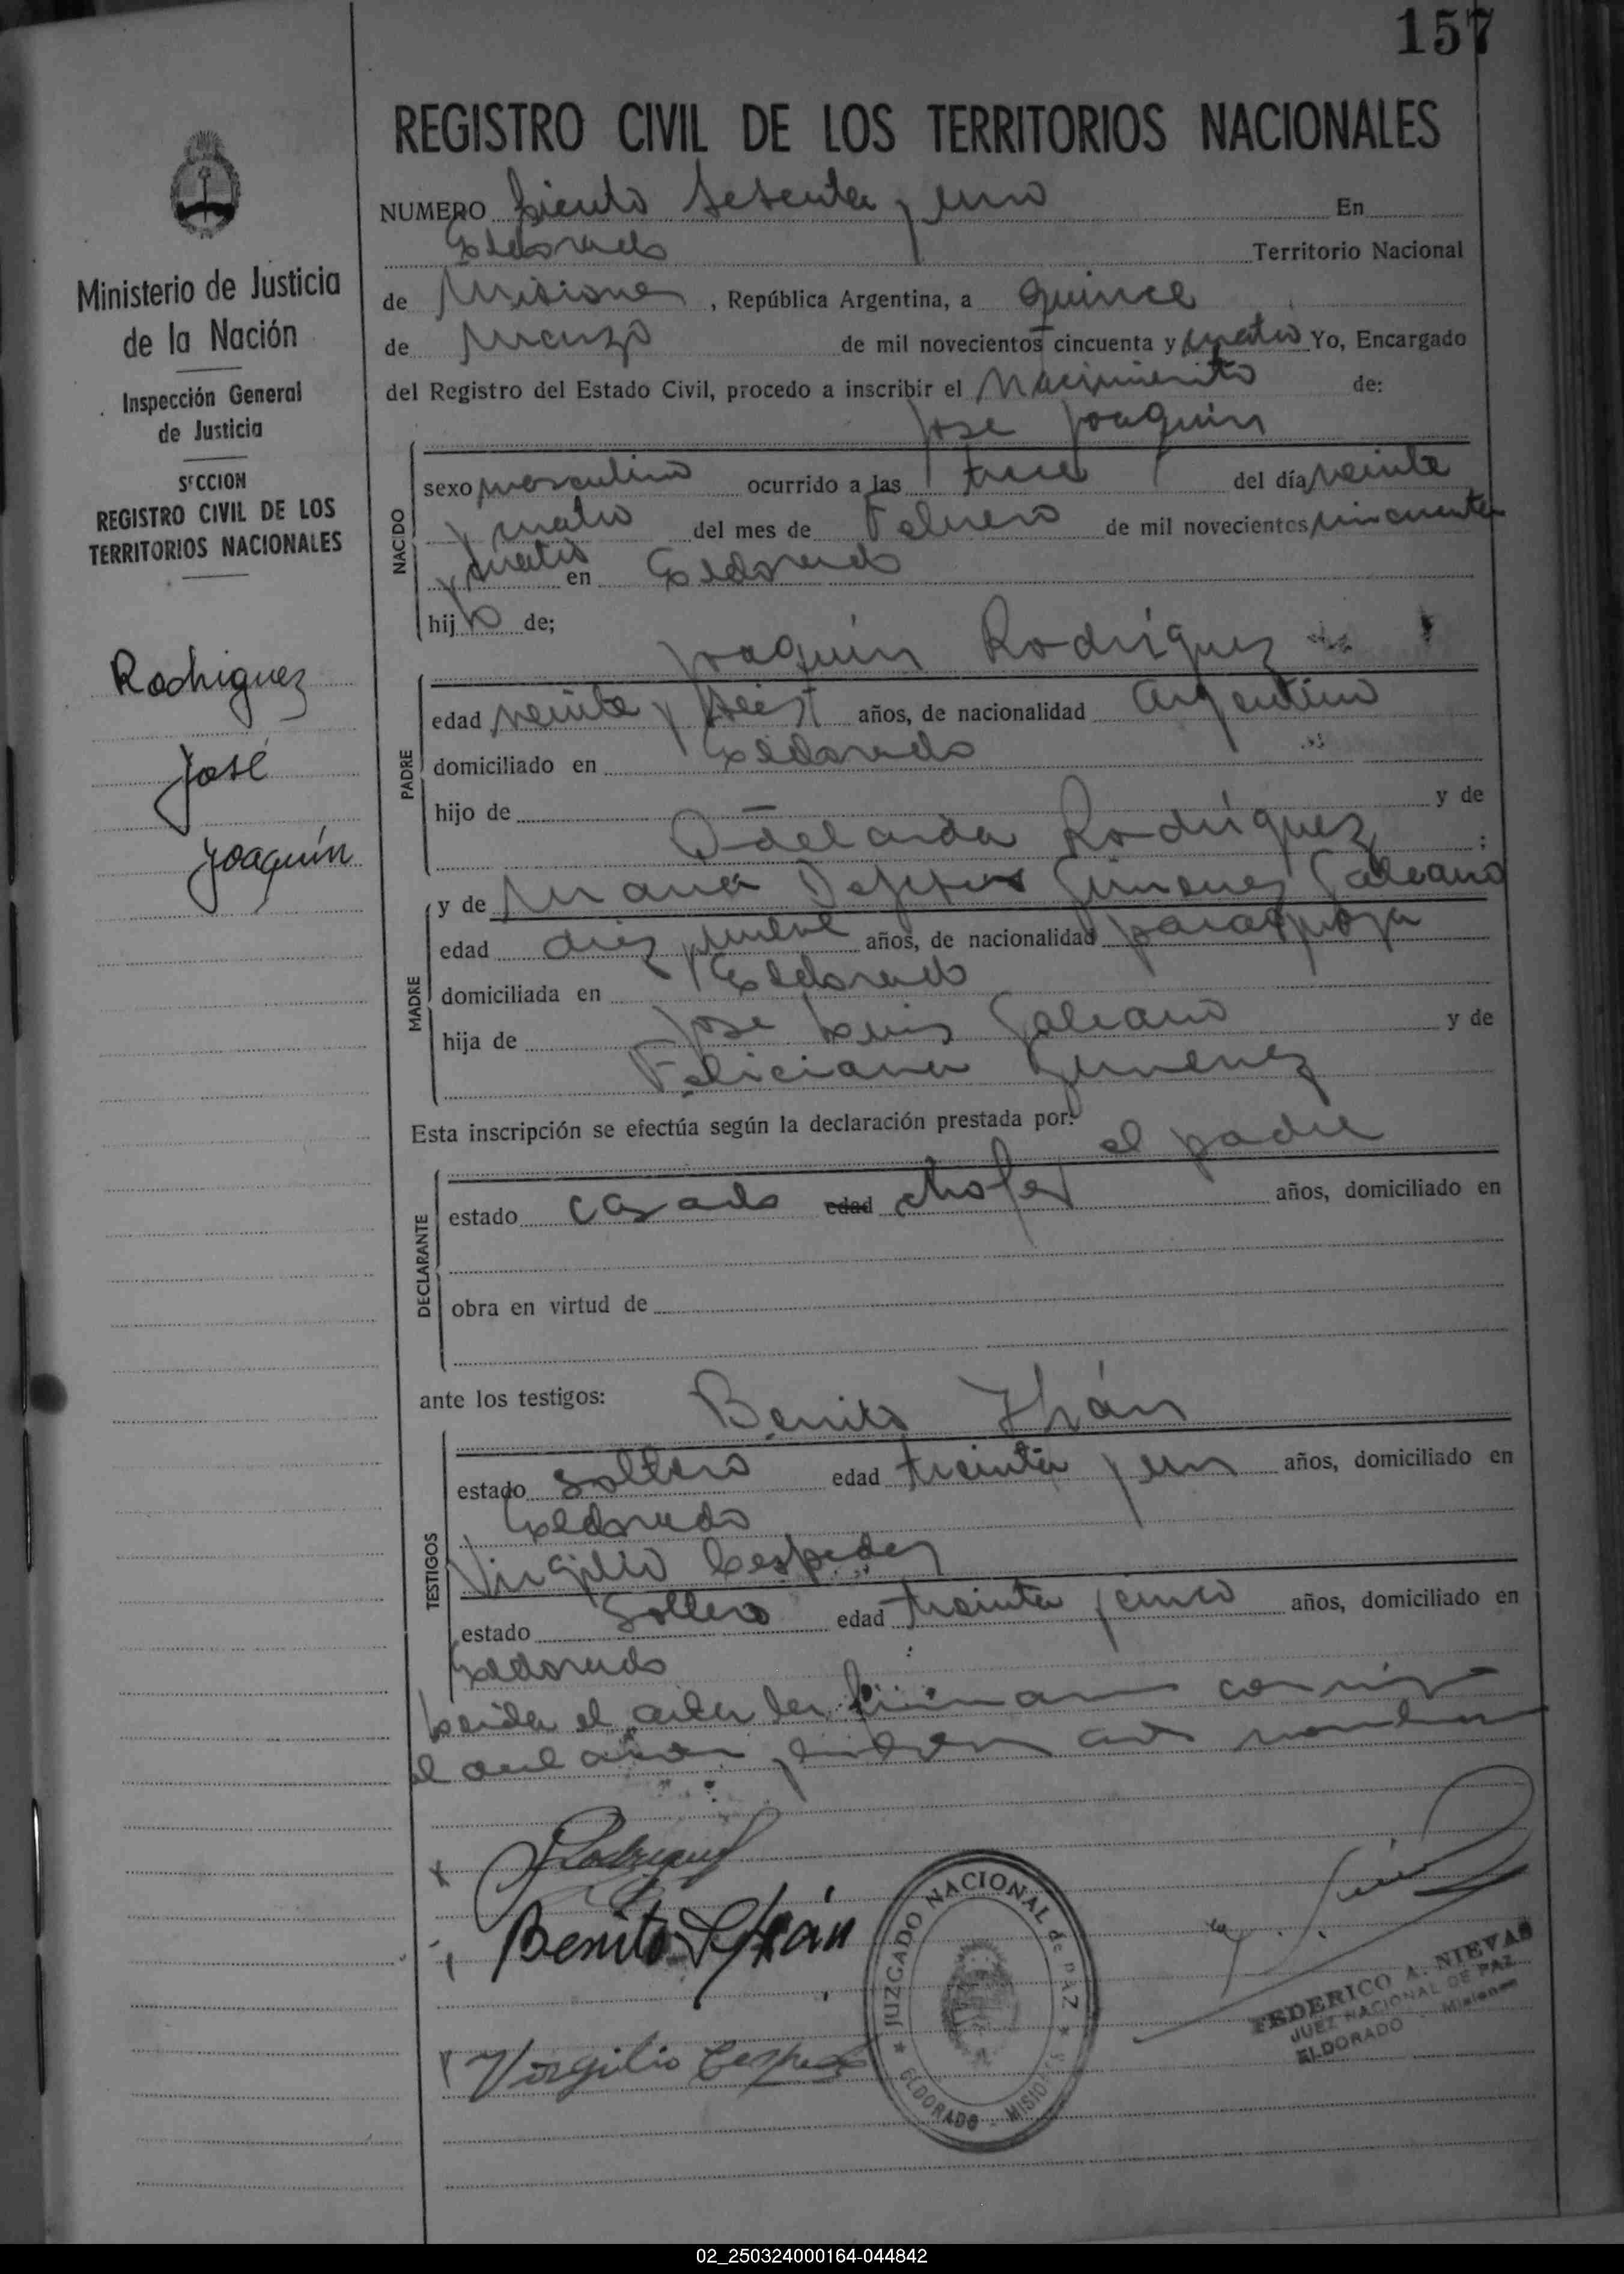 157
REGISTRO CIVIL DE LOS TERRITORIOS NACIONALES
Ministerio de Justicia
de la Nación
Inspección General
de Justicia
SECCION
REGISTRO CIVIL DE LOS
TERRITORIOS NACIONALES
Rodriguez
José
Joaquín
NUMERO Ciento sesenta y uno En
Eldorado Territorio Nacional
de Misiones, República Argentina, a quince
de Marzo de mil novecientos cincuenta y cuatro Yo, Encargado
del Registro del Estado Civil, procedo a inscribir el Nacimiento de:
Jose Joaquin
NACIDO
sexo masculino ocurrido a las trece del día veinte
y cuatro del mes de Febrero de mil novecientos cincuenta
y cuatro en Eldorado
hijo de;
Joaquin Rodríguez
PADRE
edad veinte y seis años, de nacionalidad argentino
domiciliado en Eldorado
hijo de y de
Adelaida Rodríguez;
y de Maria Gimenez Galeano
MADRE
edad diez y nueve años, de nacionalidad paraguaya
domiciliada en Eldorado
hija de Jose Luis Galeano y de
Feliciana Gimenez
Esta inscripción se efectúa según la declaración prestada por:
el padre
DECLARANTE
estado casado edad chofer años, domiciliado en
obra en virtud de
ante los testigos: Benito
TESTIGOS
estado soltero edad treinta y un años, domiciliado en
Eldorado
Virgilio Cespedes
estado soltero edad treinta y cinco años, domiciliado en
Eldorado
Leida el acta la firman conmigo
el
J Rodriguez
Benito
Virgilio Cespedes
JUZGADO NACIONAL de PAZ
ELDORADO - MISIONES
FEDERICO A. NIEVAS
JUEZ NACIONAL DE PAZ
ELDORADO - Misiones
02_250324000164-044842